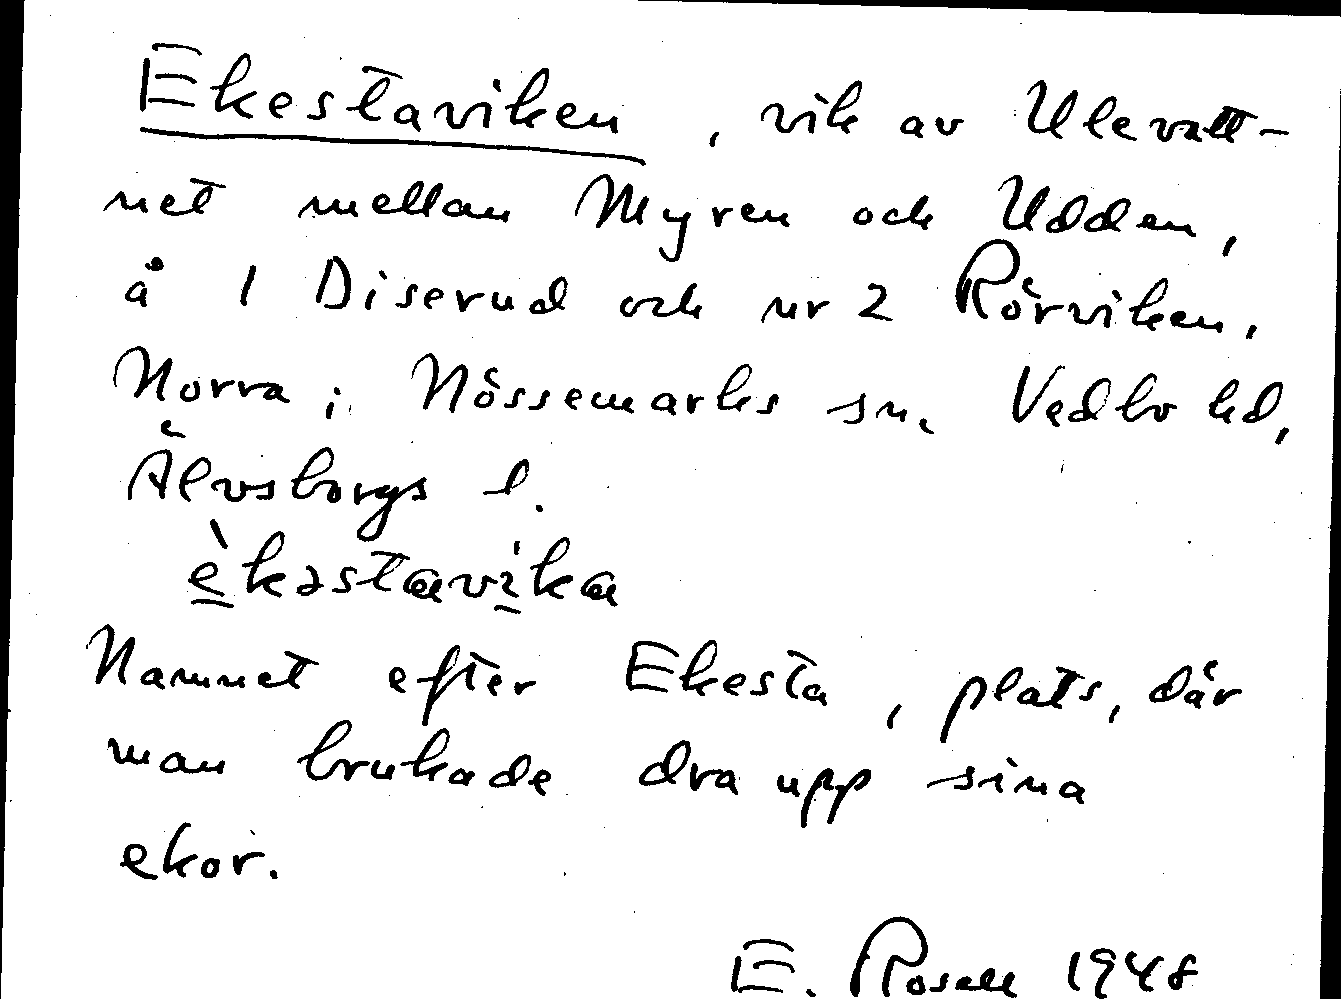 Ekestaviken, vik av Ulevatt-
net mellan Myren och Udden,
å 1 Diserud och nr 2 Rörviken,
Norra i Nössemarks sn. Vedbo hd,
Älvsborgs l.
èkəstavika
Namnet efter Ekesta, plats, där
man brukade dra upp sina
ekor.
E. Rosell 1948